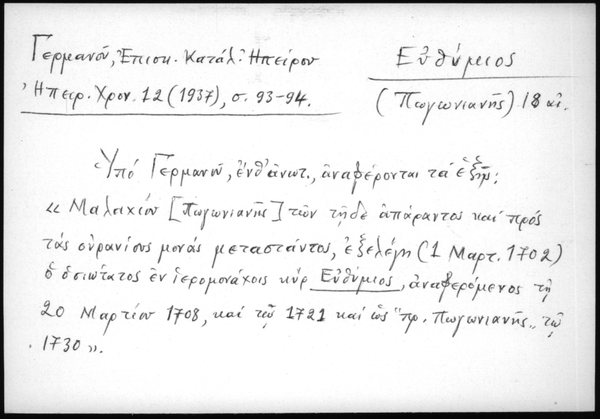 Γερμανοῦ, Ἐπισκ. Κατάλ. Ἠπείρου
Εὐθύμιος
Ἠπειρ. Χρον. 12 (1937), σ. 93-94.
(Πωγωνιανῆς) 18 αἰ.
Ὑπό Γερμανοῦ, ἐνθ' ἀνωτ., ἀναφέρονται τά ἑξῆς:
« Μαλαχίου [Πωγωνιανῆς] τῶν τῇδε ἀπάραντος καί πρός
τάς οὐρανίους μονάς μεταστάντος, ἐξελέγη (1 Μαρτ. 1702)
ὁ ὁσιώτατος ἐν ἱερομονάχοις κύρ Εὐθύμιος, ἀναφερόμενος τῇ
20 Μαρτίου 1708, καί τῷ 1721 καί ὡς "πρ. Πωγωνιανῆς" τῷ
1730 ».